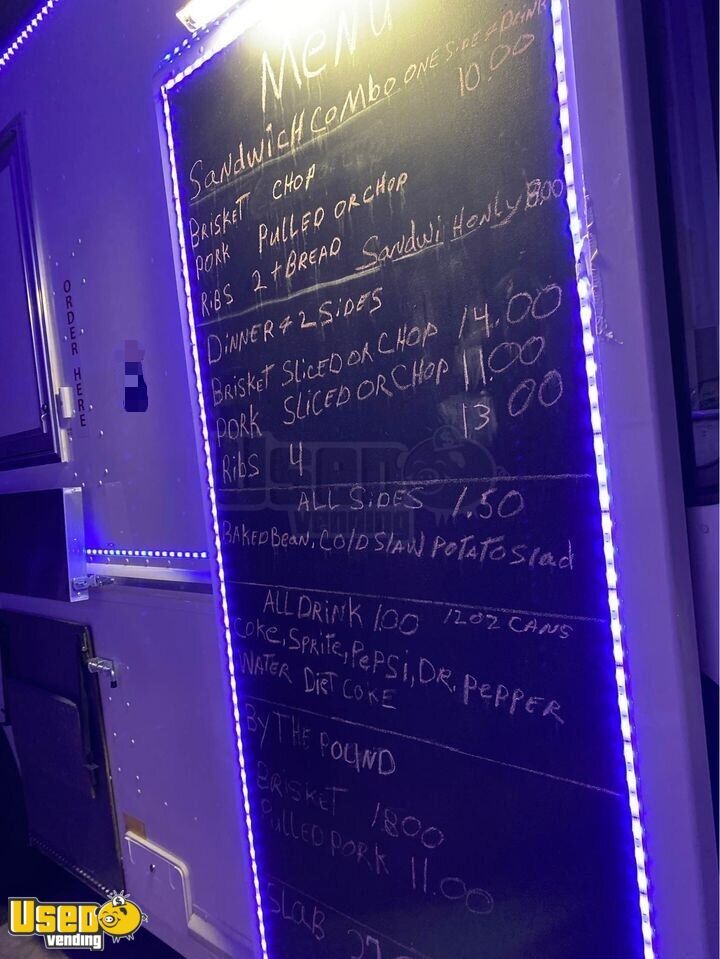 MENU
SANDWICH COMBO ONE SIDE & DRINK
10.00
BRISKET CHOP
PORK PULLED OR CHOP
RIBS 2 + BREAD SandwiHonly 8.00
DINNER & 2 SIDES
BRISKET SLICED OR CHOP 14.00
PORK SLICED OR CHOP 11.00
RiBS 4 13.00
ALL SIDES 1.50
BAKED BEAN, COLD SLAW POTATO Slad
ALL DRINK 1.00 12OZ CANS
COKE, SPRITE, PEPSI, DR. PEPPER
WATER DIET COKE
BY THE POUND
BRISKET 1800
PUllED PORK 11.00
SLAB
ORDER HERE
USED vending
USED vending